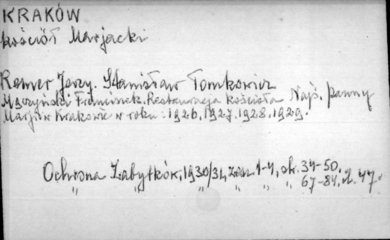 KRAKÓW
Kościół Marjacki
Remer Jerzy. Stanisław Tomkowicz
Mączyński Franciszek. Restauracja kościoła Najś. Panny
Marji w Krakowie w roku. 1926, 1927, 1928, 1929.
Ochrona Zabytków, 1930/31, 1-4, sk. 34-50,
" " " " 67-84, il. 47.